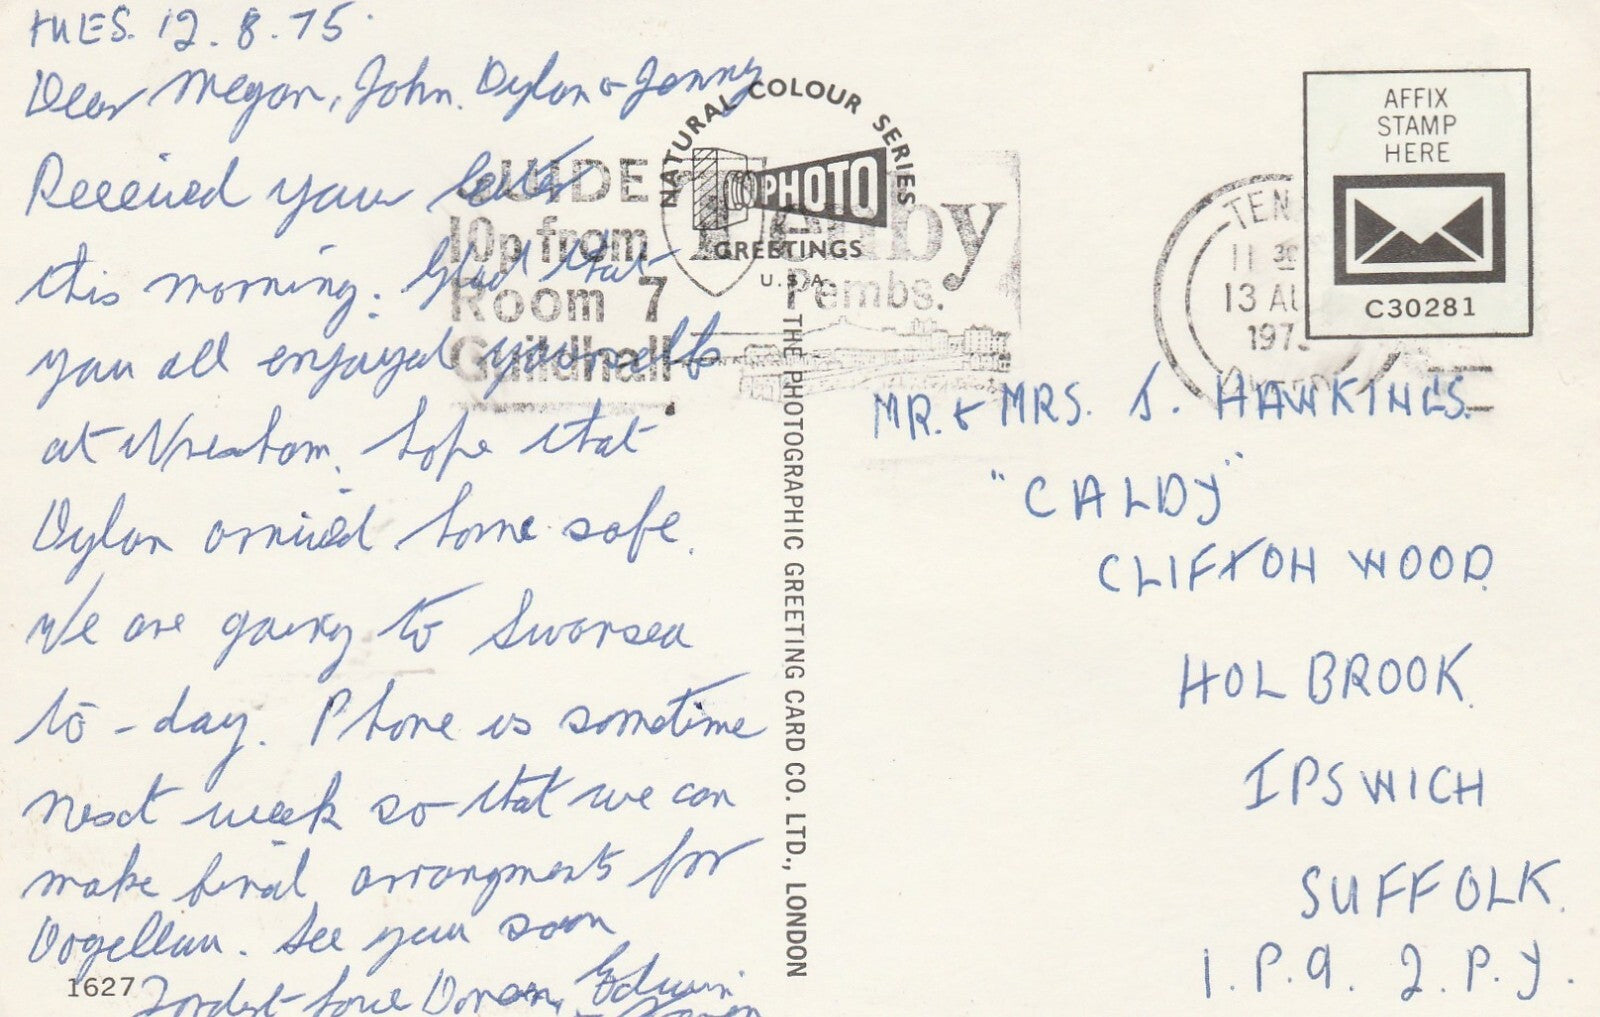 TUES. 12. 8. 75.
Dear Megan, John. Dylan & Jenny
Received your letter
this morning. Glad that
you all enjoyed yourselfs
at Wrexham. hope that
Dylan arrived home safe.
We are going to Swansea
to-day. Phone is sometime
next week so that we can
make final arrangments for
Dogellau. See you soon
Fondest love Doreen, Edwin
1627
NATURAL COLOUR SERIES
PHOTO
GREETINGS
U.S.A.
THE PHOTOGRAPHIC GREETING CARD CO. LTD., LONDON
GUIDE
10p from
Room 7
Guildhall
Tenby
Pembs.
TEN
11 30
13 AU
197
AFFIX
STAMP
HERE
C30281
MR. & MRS. J. HAWKINGS.
"CALDY"
CLIFTON WOOD.
HOLBROOK.
IPSWICH
SUFFOLK.
I.P.9. 2.P.Y.